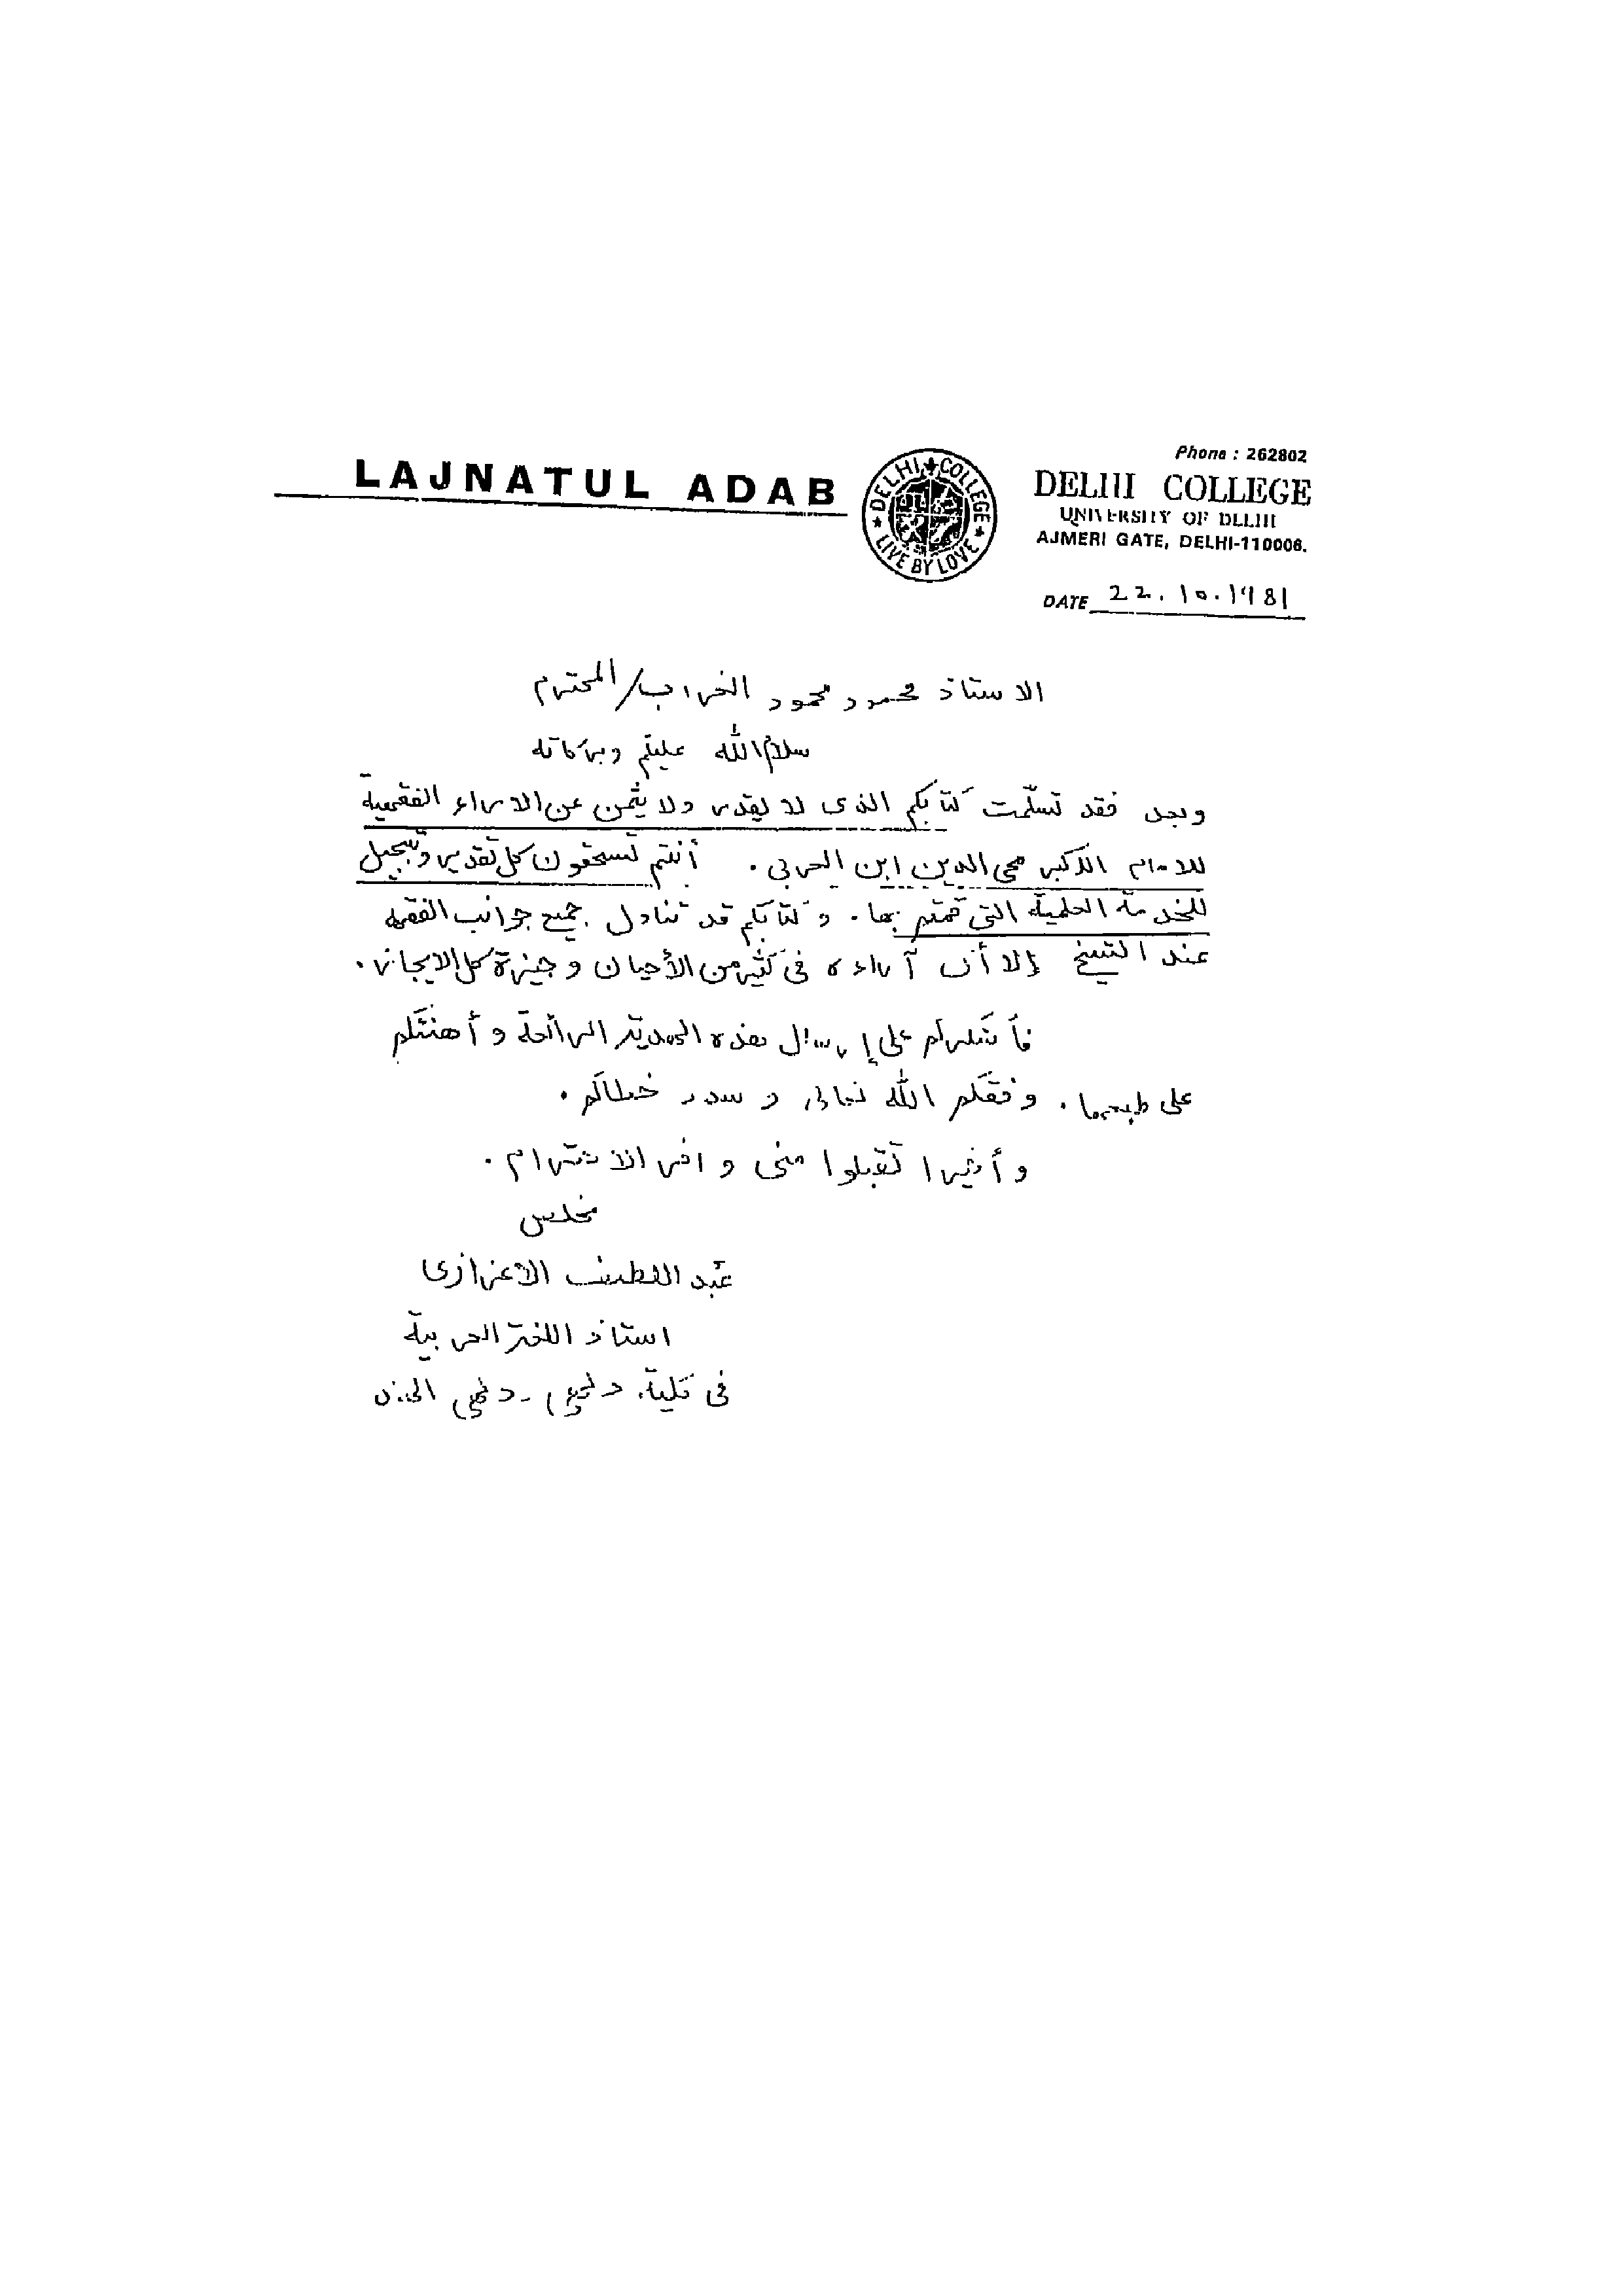 Phone : 262802
LAJNATUL ADAB
DELHI COLLEGE
LIVE BY LOVE
DELHI COLLEGE
UNIVERSITY OF DELHI
AJMERI GATE, DELHI-110006.
DATE 22.10.1981
الاستاذ محمود محمود الغراب/المحترم
سلام الله عليكم وبركاته
وبعد فقد تسلّمت كتابكم الذى لا يقدر ولا يثمن عن الاراء الفقهية
للامام الأكبر محى الدين ابن العربى . أنتم تستحقون كل تقدير وتبجيل
للخدمة العلمية التى قمتم بها . وكتابكم قد تناول جميع جوانب الفقه
عند الشيخ إلا أن آراءه فى كثير من الأحيان وجيزة كل الايجاز .
فأشكركم على إرسال هذه الهدية الرائعة و أهنئكم
على طبعها . وفقكم الله تعالى و سدد خطاكم .
و أخيرا تقبلوا منى وافر الاحترام .
مخلص
عبد اللطيف الاعزازى
استاذ اللغة العربية
فى كلية دلهى - دلهى الهند